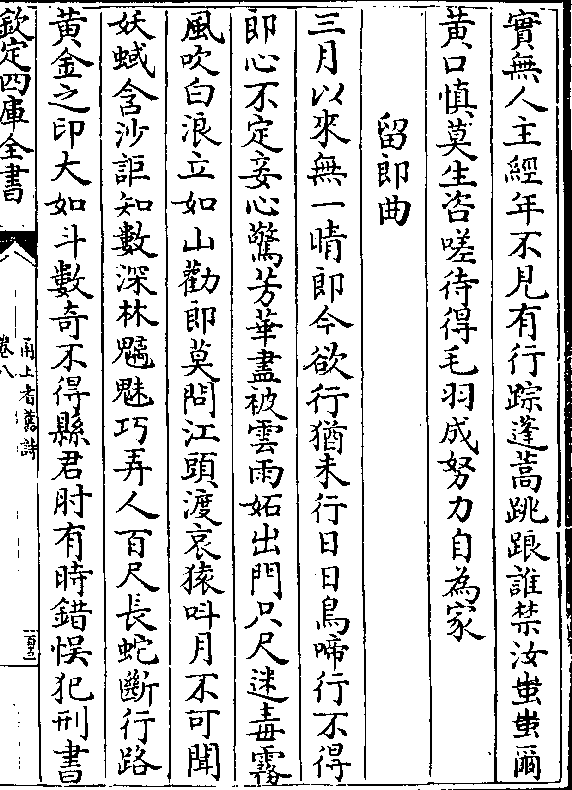 實無人主經年不見有行踪蓬蒿跳踉誰禁汝蚩蚩爾
黄口慎莫生咨嗟待得毛羽成努力自為家
留郎曲
三月以來無一晴郎今欲行猶未行日日鳥啼行不得
郎心不定妾心驚芳華盡被雲雨妬出門只尺迷毒霧
風吹白浪立如山勸郎莫問江頭渡哀猿呌月不可聞
妖蜮含沙詎知數深林魑魅巧弄人百尺長蛇斷行路
黄金之印大如斗數奇不得縣君肘有時錯悞犯刑書
欽定四庫全書
甬上耆舊詩
卷八